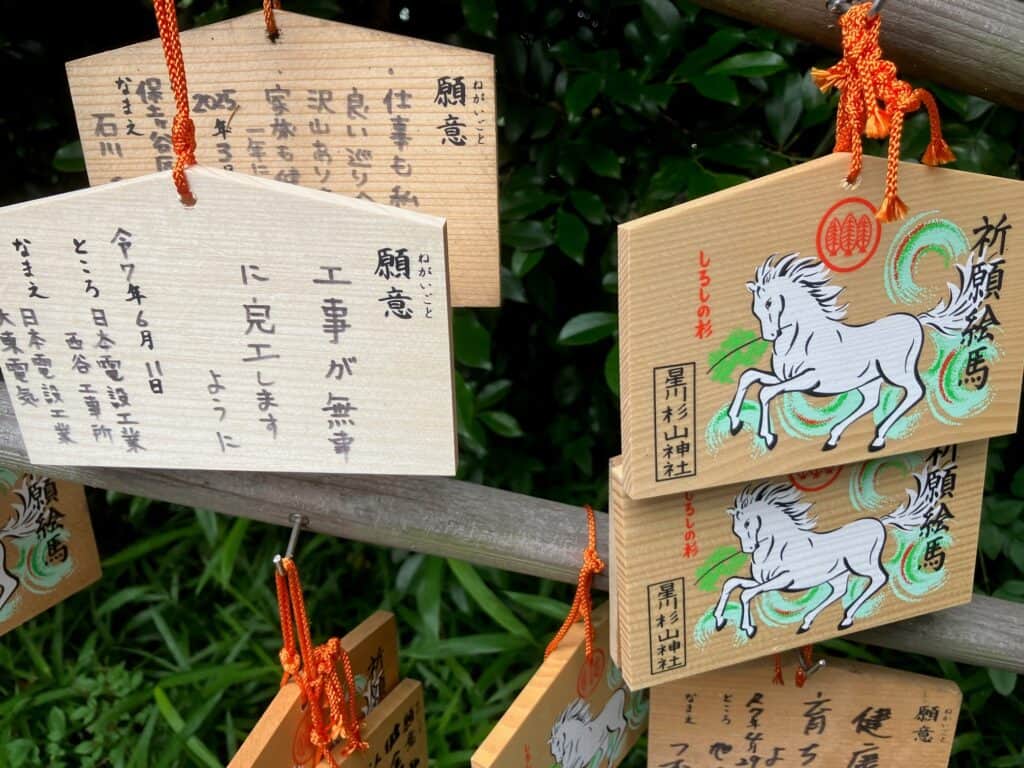 願意
ねがいごと
仕事も私
良い巡り
沢山あり
家族も健
一年に
2025年3
保土谷区
なまえ
石川
願意
ねがいごと
工事が無事
に完工します
ように
令和7年6月11日
ところ 日本電設工業
西谷工事所
なまえ 日本電設工業
大東電気
祈願絵馬
しろしの杉
星川杉山神社
祈願絵馬
しろしの杉
星川杉山神社
願絵馬
祈願
願意
ねがいごと
健康
育ち
ところ
なまえ